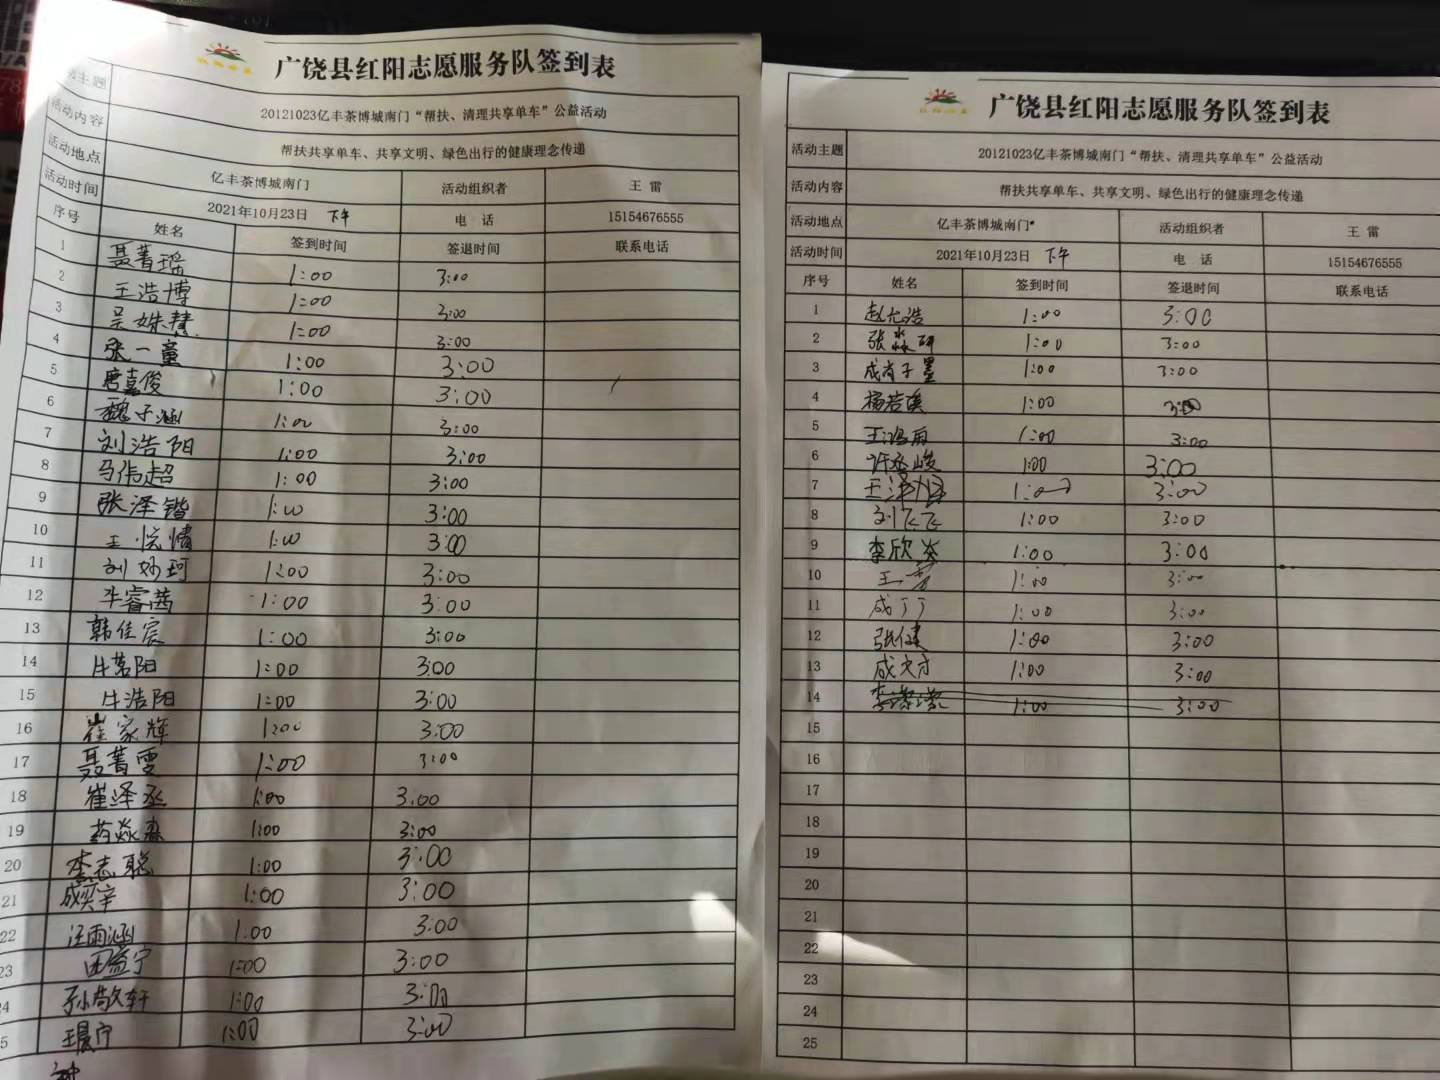 广饶县红阳志愿服务队签到表
主题 20121023亿丰茶博城南门“帮扶、清理共享单车”公益活动
活动内容 帮扶共享单车、共享文明、绿色出行的健康理念传递
活动地点 亿丰茶博城南门 活动组织者 王雷
活动时间 2021年10月23日 下午 电话 15154676555
序号 姓名 签到时间 签退时间 联系电话
1 聂菁瑶 1:00 3:00
2 王浩博 1:00 3:00
3 吴姝慧 1:00 3:00
4 张一童 1:00 3:00
5 唐嘉俊 1:00 3:00
6 魏子涵 1:00 3:00
7 刘浩阳 1:00 3:00
8 马伟超 1:00 3:00
9 张泽锴 1:00 3:00
10 王悦情 1:00 3:00
11 刘妙珂 1:00 3:00
12 牛睿茜 1:00 3:00
13 韩佳宸 1:00 3:00
14 牛茗阳 1:00 3:00
15 牛浩阳 1:00 3:00
16 崔家辉 1:00 3:00
17 聂菁雯 1:00 3:00
18 崔泽丞 1:00 3:00
19 1:00 3:00
20 李志聪 1:00 3:00
21 成奕辛 1:00 3:00
22 汪雨涵 1:00 3:00
23 田益宁 1:00 3:00
24 孙敬轩 1:00 3:00
5 王晨宁 1:00 3:00
广饶县红阳志愿服务队签到表
活动主题 20121023亿丰茶博城南门“帮扶、清理共享单车”公益活动
活动内容 帮扶共享单车、共享文明、绿色出行的健康理念传递
活动地点 亿丰茶博城南门 活动组织者 王雷
活动时间 2021年10月23日 下午 电话 15154676555
序号 姓名 签到时间 签退时间 联系电话
1 赵允浩 1:00 3:00
2 张淼研 1:00 3:00
3 成肖子墨 1:00 3:00
4 杨若溪 1:00 3:00
5 1:00 3:00
6 许丞峻 1:00 3:00
7 1:00 3:00
8 刘飞飞 1:00 3:00
9 李欣岑 1:00 3:00
10 王芳 1:00 3:00
11 成丁丁 1:00 3:00
12 张健 1:00 3:00
13 成文方 1:00 3:00
14 李潆潆 1:00 3:00
15
16
17
18
19
20
21
22
23
24
25